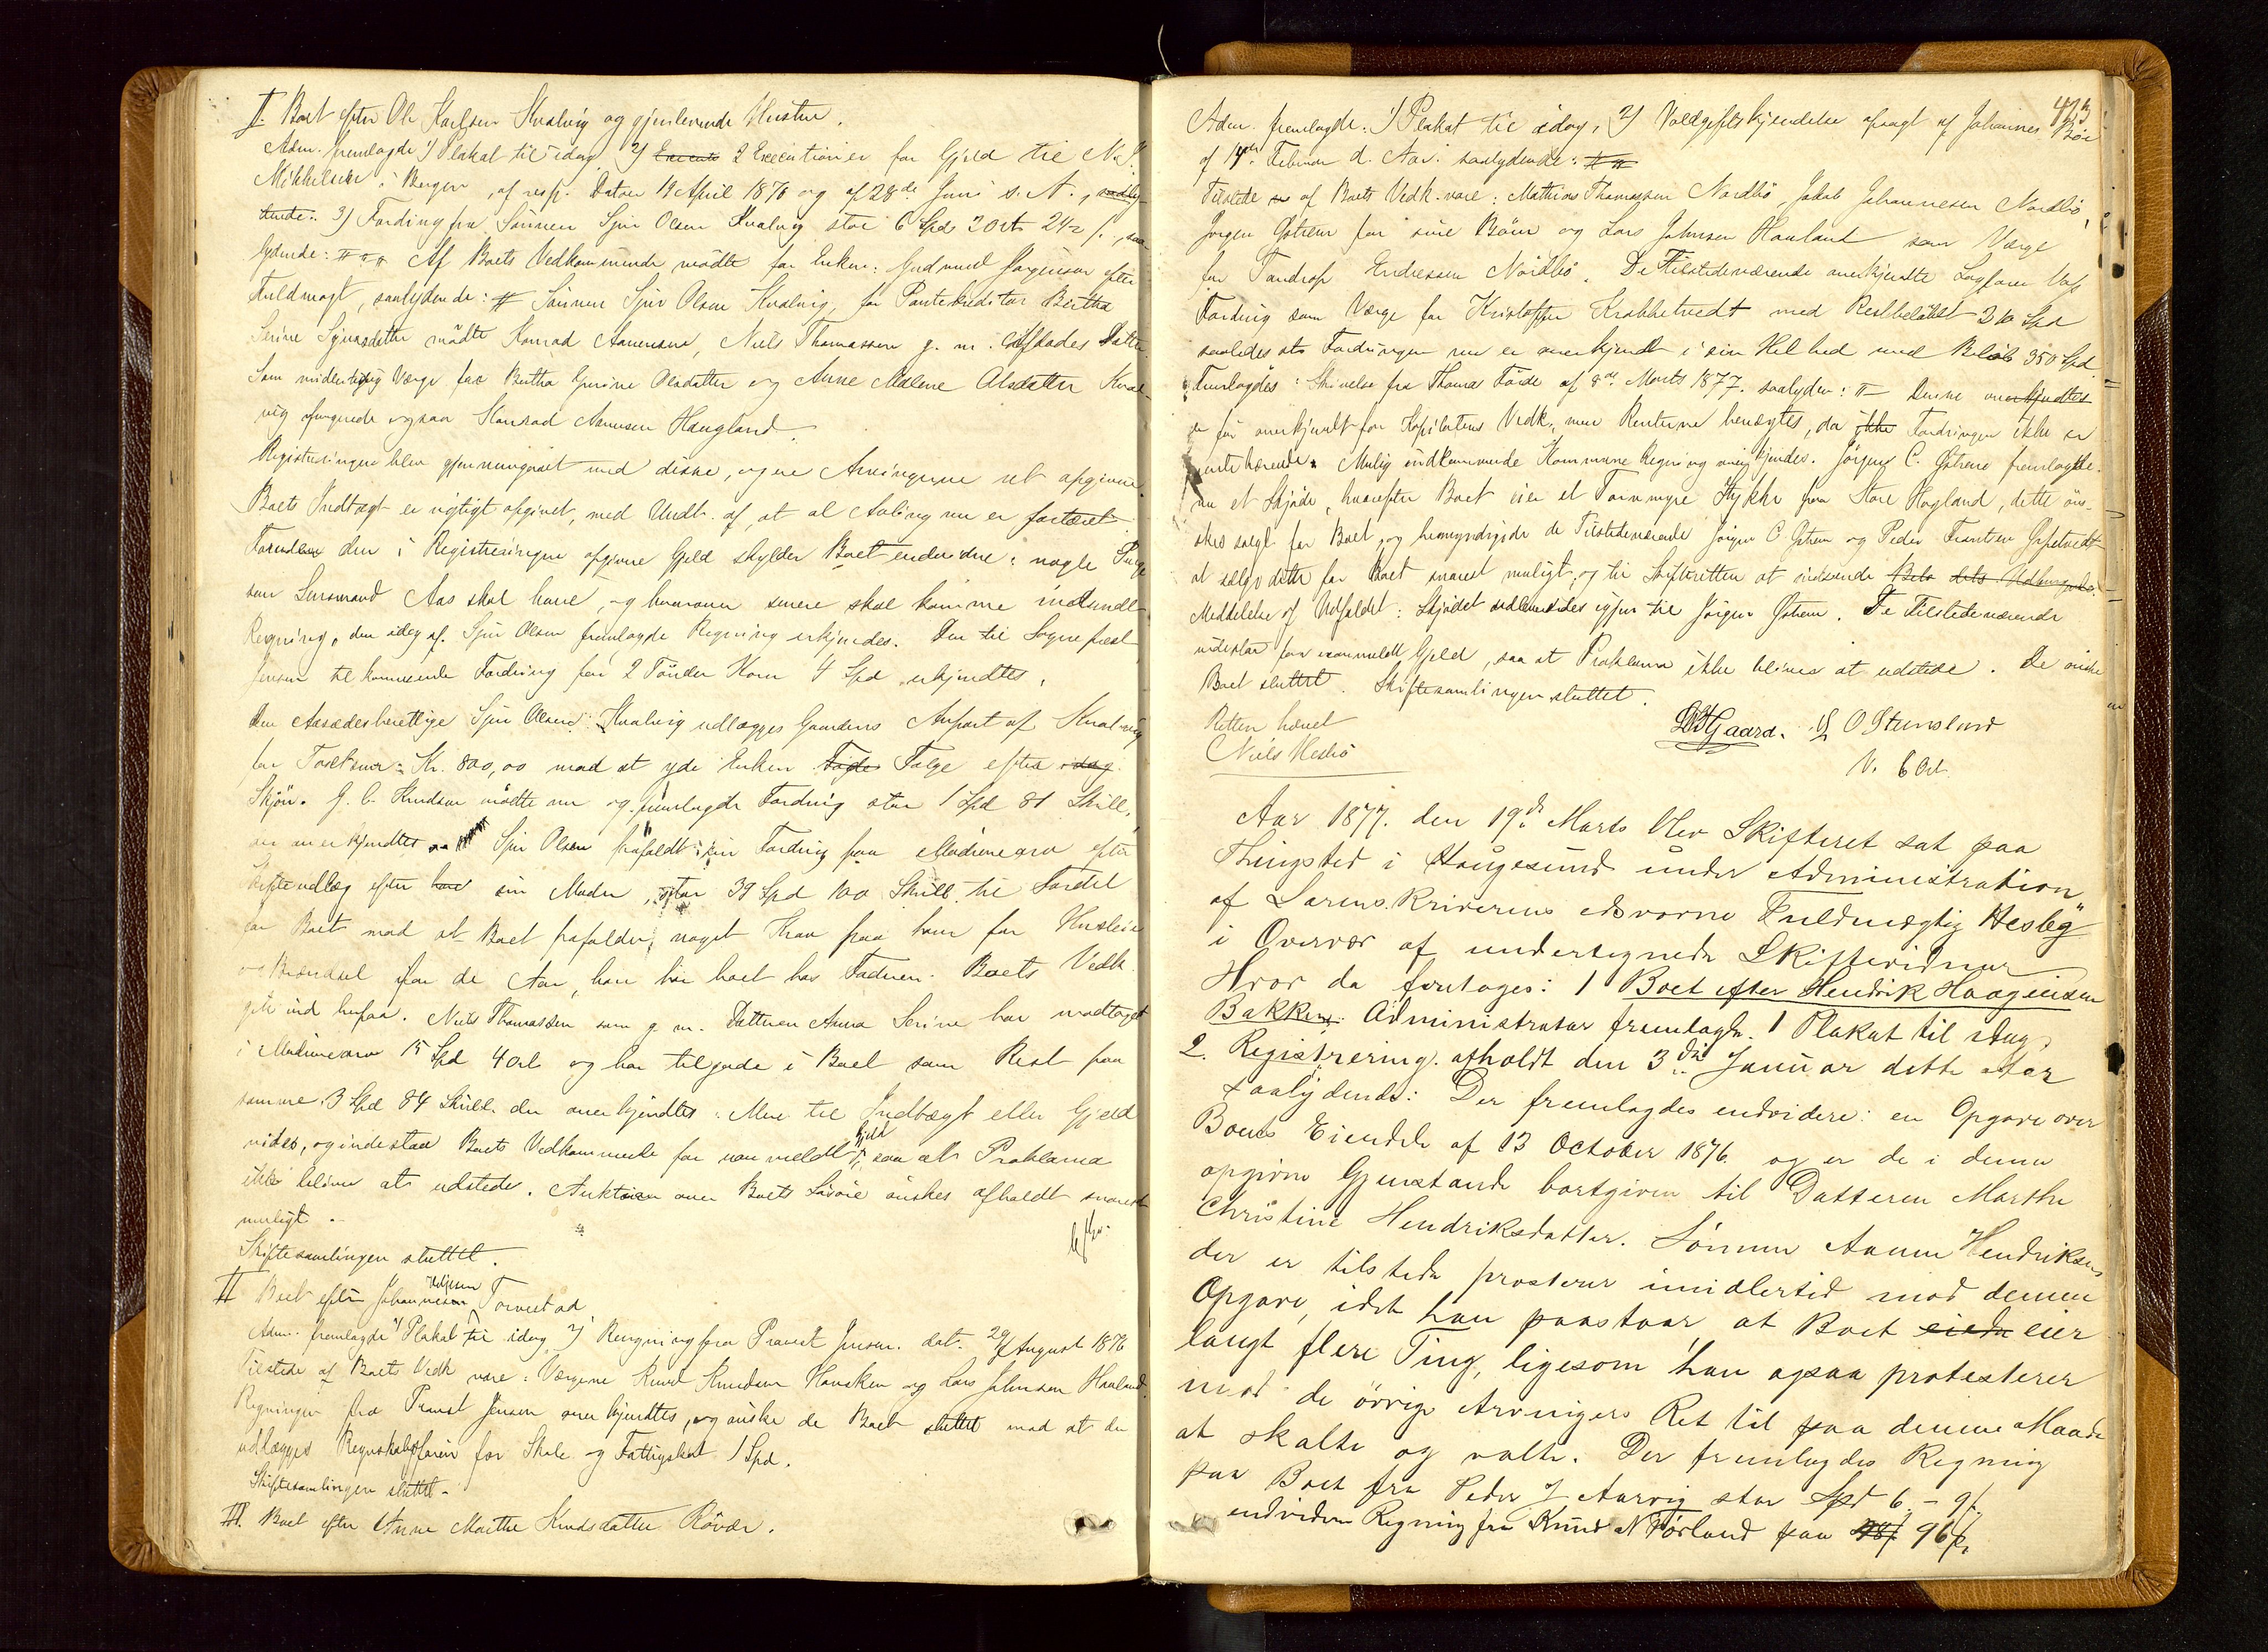 I. Boet efter Ole Karlsen Kvalvig og gjenlevende Hustru.
Adm. fremlagde 1) Plakat til idag 2) 2 Executioner for Gjeld til N. J.
Mikkelsen i Bergen, af resp. Datoer 19 April 1870 og af 28de Juni s. A.,
3) Fordring fra Sönnen Sjur Olsen Kvalvig stor 6 Spd 2 Ort 24 ß., saa
lydende: Af Boets Vedkommende mödte for Enken: Gudmund Jörgensen efter
Fuldmagt, saalydende: Sönnen Sjur Olsen Kvalvig, for Pantekreditor Bertha
Serine mödte Konrad Aanensen, Niels Thomassen g. m. Afdödes Datter
Som midlertidig Værge for Bertha Gurine Olsdatter og Anne Malene Olsdatter Kval-
vig fungerede ogsaa Konrad Aanensen Haugland.
Registreringen blev gjennemgaaet med disse, og ere Arvingerne ret opgivne.
Boets Indtægt er rigtigt opgivet, med Undt. af, at al Avling nu er fortæret
Foruden den i Registreringen opgivne Gjeld skylder Boet endvidere: nogle Penge
som Lensmand Aas skal have, og hvorover senere skal komme indsendt
Regning, den idag af Sjur Olsen fremlagde Regning erkjendes. Den til Sogneprest
Jensen tilkommende Fordring for 2 Tönder Korn 4 Spd erkjendtes.
Den Aasædesberettige Sjur Olsen Kvalvig udlægges Gaardens Anpart af Kvalvig
for Taxtsum: Kr. 800,00 mod at yde Enken Folge efter
Skjön. G. C. Knudsen mödte nu og fremlagde Fordring stor 1 Spd 81 Skill.
der anerkjendtes Sjur Olsen frafaldt sin Fordring paa Mödrenearv efter
Skifteudlæg efter sin Moder, stor 39 Spd 100 Skill. til Fordel
for Boet mod at Boet frafalder noget Krav paa ham for Husleie
og Brændsel for de Aar, han har boet hos Faderen. Boets Vedk.
gik ind herpaa. Niels Thomassen som g. m. Datteren Anna Serine har modtaget
i Mödrenearv 15 Spd 4 Ort og har tilgode i Boet som Rest paa
samme 3 Spd 84 Skill. der anerkjendtes. Mere til Indtægt eller Gjeld
vides, og indestaa Boets Vedkommende for uanmeldt Gjeld, saa at Proklama
ikke bliver at udstede. Auktion over Boets Lösöre önskes afholdt snarest
muligt.
Skiftesamlingen sluttet.
II Boet efter Johannes Torvestad
Adm. fremlagde 1) Plakat til idag 2) Regning fra Provst Jensen dat. 29/ August 1876
Tilstede af Boets Vedk. vare: Værgene Knud Knudsen Hausken og Lars Johnsen Hauland.
Regningen fra Provst Jensen anerkjendtes, og önske de Boet sluttet mod at der
udlægges Regnskabsförer for Skole og Fattigskat 1 Spd.
Skiftesamlingen sluttet.
III. Boet efter Anne Marthe Knudsdatter Rövær.
413
Adm. fremlagde: 1) Plakat til idag, 2) Voldgiftskjendelse afsagt af Johannes Böe
af 14de Februar d. Aar. saalydende:
Tilstede af Boets Vedk. vare: Mathias Thomassen Nordbö, Jakob Johannesen Nordbö,
Jörgen Östrem for sine Börn og Lars Johnsen Hauland som Værge
for Tandrup Endresen Nordbö. De Tilstedeværende anerkjendte
Fordring som Værge for Kristoffer Krabbetvedt med Restbelöbet 310 Spd
saaledes at Fordringen nu er anerkjendt i sin Helhed med Belöb 350 Spd.
Fremlagdes: Skrivelse fra Thomas Förde af 8de Marts 1877. saalyden: Denne
er før anerkjendt for Kapitalens Vedk., men Renterne benægtes, da Fordringen ikke er
rentebærende. Mulig indkommende Kommune Regning anerkjendes. Jörgen C. Östrem fremlagde
nu et Skjöde, hvorefter Boet eier et Torvmyre Stykke fra Store Hogland, dette öns-
kes solgt for Boet, og bemyndigede de Tilstedeværende Jörgen C Östrem og Peder Frantsen
at sælge dette for Boet snarest muligt, og til Skifteretten at indsende
Meddelelse af Udfaldet: Skjödet igjen til Jörgen Östrem. De Tilstedeværende
indestaa for uanmeldt Gjeld, saa at Proklama ikke bliver at udstede. De önske
Boet sluttet. Skiftesamlingen sluttet.
Retten hævet
Niels Hesbö
Gaard. O Stensland
V. 6 Ort.
Aar 1877. den 19de Marts blev Skifteret sat paa
Thingsted i Haugesund under Administration
af Sorenskriverens edsvorne Fuldmægtig Hesbÿ
i Overvær af undertegnede Skiftevidner
Hvor da foretoges: 1 Boet efter Hendrik Haagensen
Bakken. Administrator fremlagde. 1 Plakat til idag,
2. Registrering. afholdt den 3die Januar dette Aar
saalydende: Der fremlagdes endvidere: en Opgave over
Boets Eiendele af 13 October 1876 og er de i denne
opgivne Gjenstande bortgiven til Datteren Marthe
Christine Hendriksdatter. Sönnen Aanen Hendriksen
der er tilstede protester imidlertid mod denne
Opgave, idet han paastaar, at Boet eiede eier
langt flere Ting, ligesom han ogsaa protesterer
mod de övrige Arvingers Ret til paa denne Maade
at skalte og valte. Der fremlagdes Regning
paa Boet fra Peder J Aarvig stor Spd 6 - 9ß.
endvidere Regning fra Knud N Förland paa 96ß.